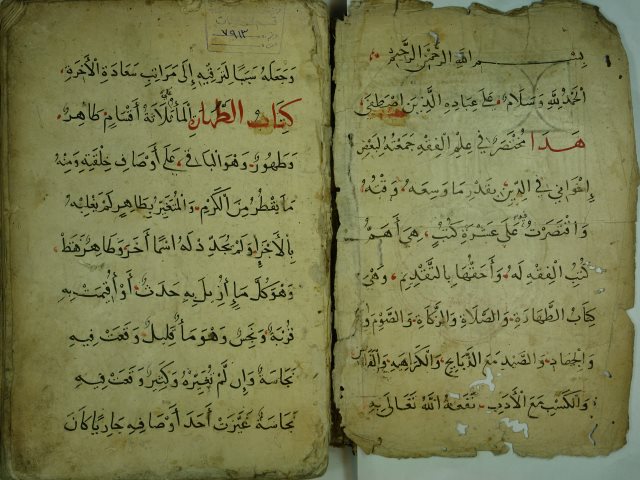 بسم الله الرحمن الرحيم
الحمد لله وسلام على عباده الذين اصطفى
هذا مختصر في علم الفقه جمعته لبعض
إخواني في الدين بقدر ما وسعه وقته
واقتصرت على عشرة كتب هي أهم
كتب الفقه له وأحقها بالتقديم وهي
كتاب الطهارة والصلاة والزكاة والصوم والحج
والجهاد والصيد مع الذبائح والكراهية والفرائض
والكسب مع الأدب نفعه الله تعالى به
وجعله سببا لترقيه إلى مراتب سعادة الآخرة
كتاب الطهارة الماء ثلاثة أقسام طاهر
وطهور وهو الباقي على أوصاف خلقته ومنه
ما يقطر من الكرم والمتغير بطاهر لم يغلبه
بالأجزاء ولم يجدد له اسما آخر وطاهر فقط
وهو كل ما أزيل به حدث أو أقيمت به
قربة ونجس وهو ماء قليل وقعت فيه
نجاسة وإن لم تغيره وكثير وقعت فيه
نجاسة غيرت أحد أوصافه جاريا كان
٧٩١٣